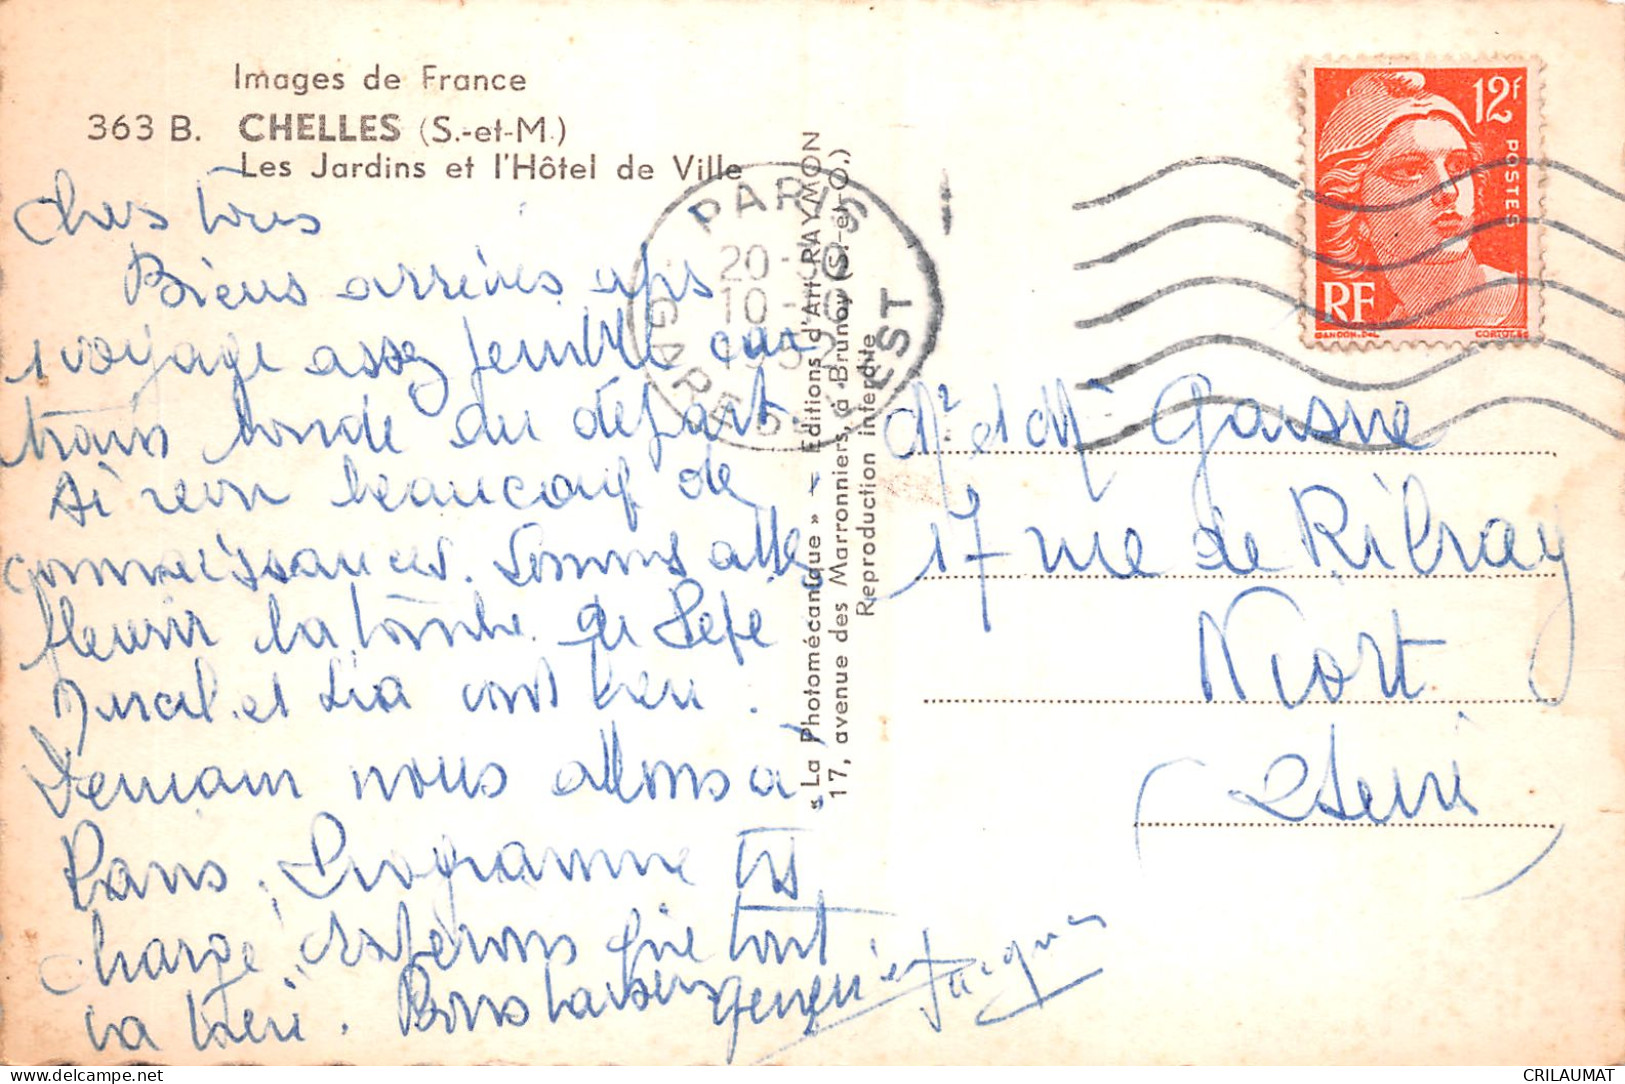 Images de France
363 B. CHELLES (S.-et-M.)
Les Jardins et l'Hôtel de Ville
Chers tous
Biens arrivés aps
voyage assez pénible car
train bondé au départ
Ai revu beaucoup de
connaissances. Sommes allés
fleurir la tombe de Pépé
Marcel et Lia vont bien.
Demain nous allons à
Paris, Programme très
chargé, espérons que tout
va bien. Bons baisers
Jacques
« La Photomécanique » - Editions d'Art RAYMON
17, avenue des Marronniers, à Brunoy (S.-et-O.)
Reproduction interdite
PARIS
20
10
GARE DE L'EST
12f
POSTES
RF
GANDON.DEL.
CORTOT.SC
Mr et Me
17 rue de Ribray
Niort
2 Sèvres
CRILAUMAT